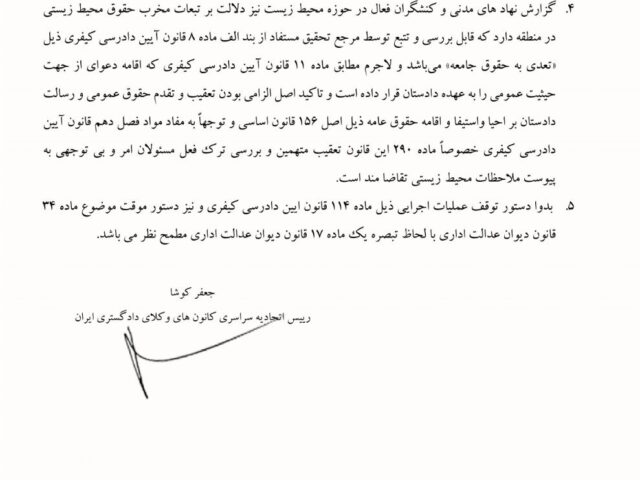 ۴. گزارش نهاد های مدنی و کنشگران فعال در حوزه محیط زیست نیز دلالت بر تبعات مخرب حقوق محیط زیستی
در منطقه دارد که قابل بررسی و تتبع توسط مرجع تحقیق مستفاد از بند الف ماده ۸ قانون آیین دادرسی کیفری ذیل
«تعدی به حقوق جامعه» می‌باشد و لاجرم مطابق ماده ۱۱ قانون آیین دادرسی کیفری که اقامه دعوای از جهت
حیثیت عمومی را به عهده دادستان قرار داده است و تاکید اصل الزامی بودن تعقیب و تقدم حقوق عمومی و رسالت
دادستان بر احیا واستیفا و اقامه حقوق عامه ذیل اصل ۱۵۶ قانون اساسی و توجهاً به مفاد مواد فصل دهم قانون آیین
دادرسی کیفری خصوصاً ماده ۲۹۰ این قانون تعقیب متهمین و بررسی ترک فعل مسئولان امر و بی توجهی به
پیوست ملاحظات محیط زیستی تقاضا مند است.
۵. بدوا دستور توقف عملیات اجرایی ذیل ماده ۱۱۴ قانون ایین دادرسی کیفری و نیز دستور موقت موضوع ماده ۳۴
قانون دیوان عدالت اداری با لحاظ تبصره یک ماده ۱۷ قانون دیوان عدالت اداری مطمح نظر می باشد.
جعفر کوشا
رییس اتحادیه سراسری کانون های وکلای دادگستری ایران